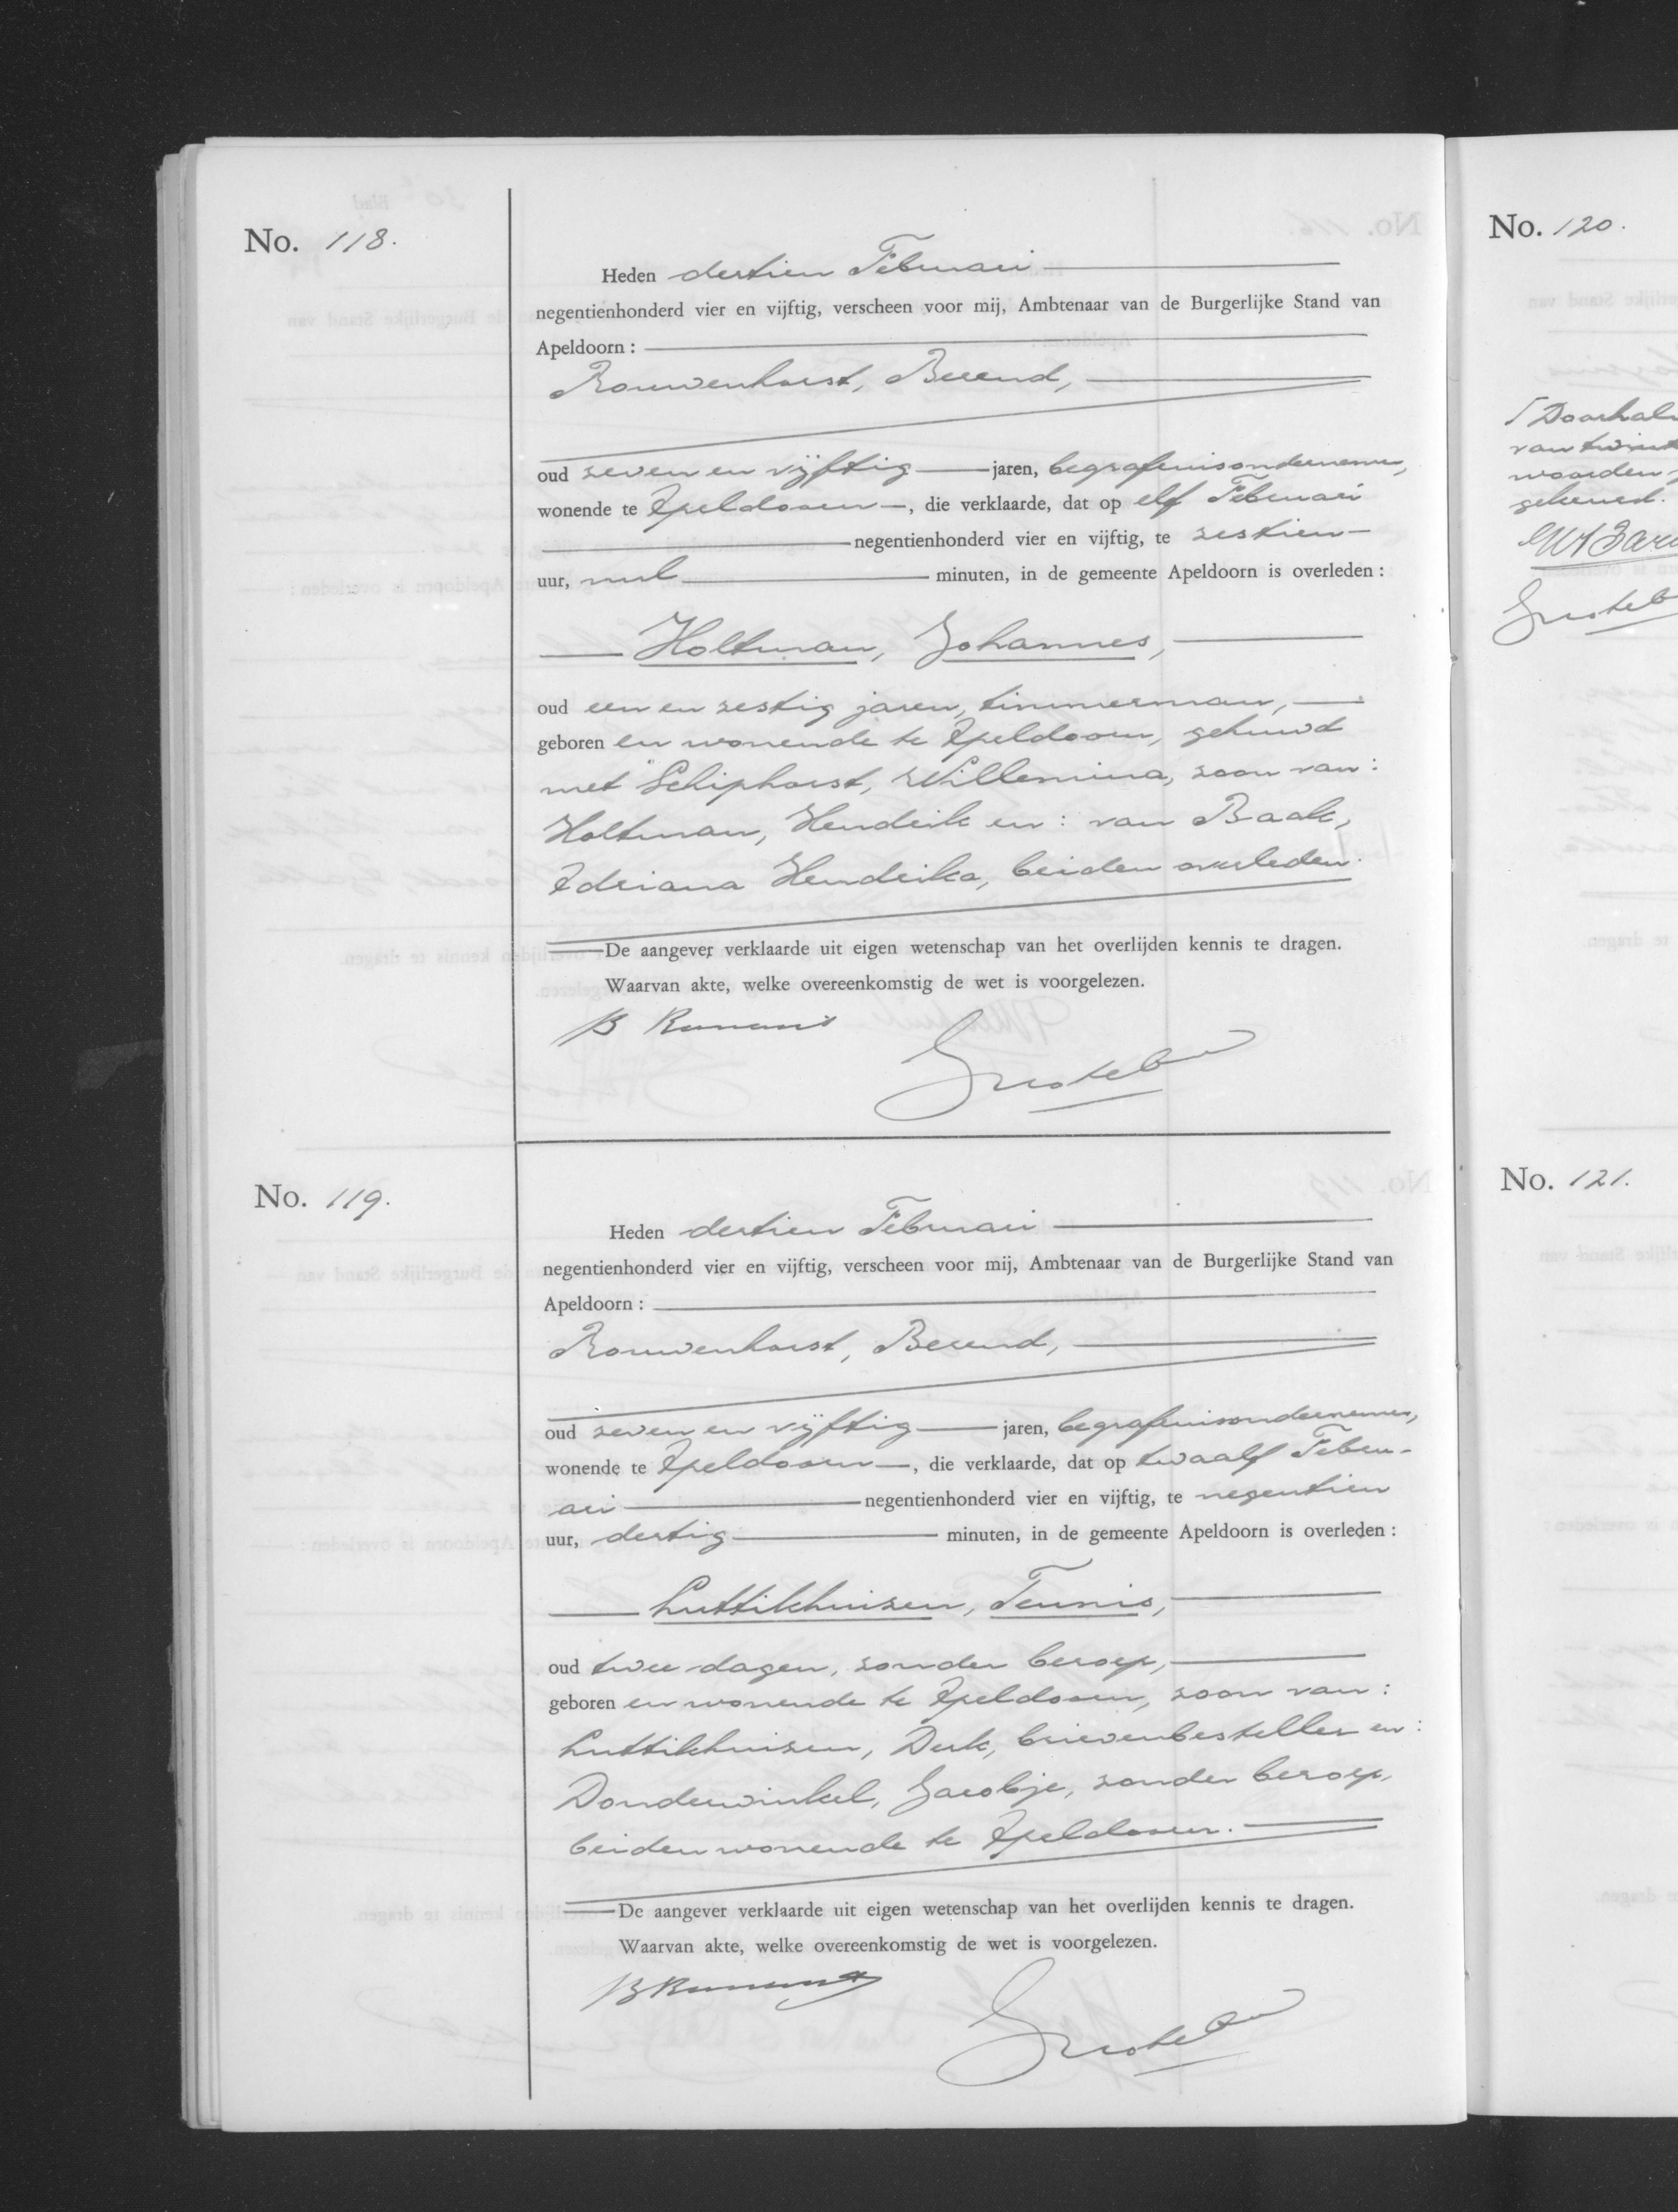 No. 118.
Heden dertien Februari
negentienhonderd vier en vijftig, verscheen voor mij, Ambtenaar van de Burgerlijke Stand van
Apeldoorn :
Rouwenhorst, Berend,
oud zeven en vijftig jaren, begrafenisondernemer,
wonende te Apeldoorn —, die verklaarde, dat op elf Februari
negentienhonderd vier en vijftig, te zestien
uur, nul minuten, in de gemeente Apeldoorn is overleden :
Holtman, Johannes,
oud een en zestig jaren, timmerman,
geboren en wonende te Apeldoorn, gehuwd
met Schiphorst, Willemina, zoon van :
Holtman, Hendrik en : van Baak,
Adriana Hendrika, beiden overleden.
De aangever verklaarde uit eigen wetenschap van het overlijden kennis te dragen.
Waarvan akte, welke overeenkomstig de wet is voorgelezen.
No. 119.
Heden dertien Februari
negentienhonderd vier en vijftig, verscheen voor mij, Ambtenaar van de Burgerlijke Stand van
Apeldoorn :
Rouwenhorst, Berend,
oud zeven en vijftig jaren, begrafenisondernemer,
wonende te Apeldoorn —, die verklaarde, dat op twaalf Febru-
ari negentienhonderd vier en vijftig, te negentien
uur, dertig minuten, in de gemeente Apeldoorn is overleden :
Luttikhuizen, Teunis,
oud twee dagen, zonder beroep,
geboren en wonende te Apeldoorn, zoon van :
Luttikhuizen, Derk, brievenbesteller en :
Donderwinkel, Jacobje, zonder beroep,
beiden wonende te Apeldoorn.
De aangever verklaarde uit eigen wetenschap van het overlijden kennis te dragen.
Waarvan akte, welke overeenkomstig de wet is voorgelezen.
No. 120.
van
woorden
No. 121.